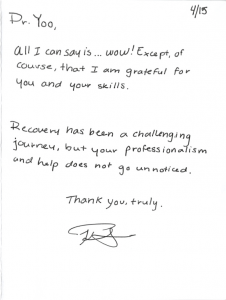 4/15
Dr. Yoo,
All I can say is... wow! Except, of
course, that I am grateful for
you and your skills.
Recovery has been a challenging
journey, but your professionalism
and help does not go unnoticed.
Thank you, truly.